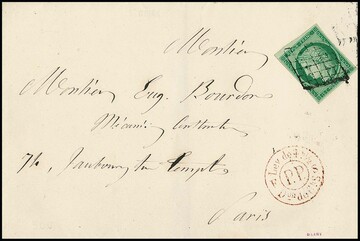 Monsieur
Monsieur Eug. Bourdon
Mécanicien Constructeur
74, Faubourg du Temple
Paris
P.P.